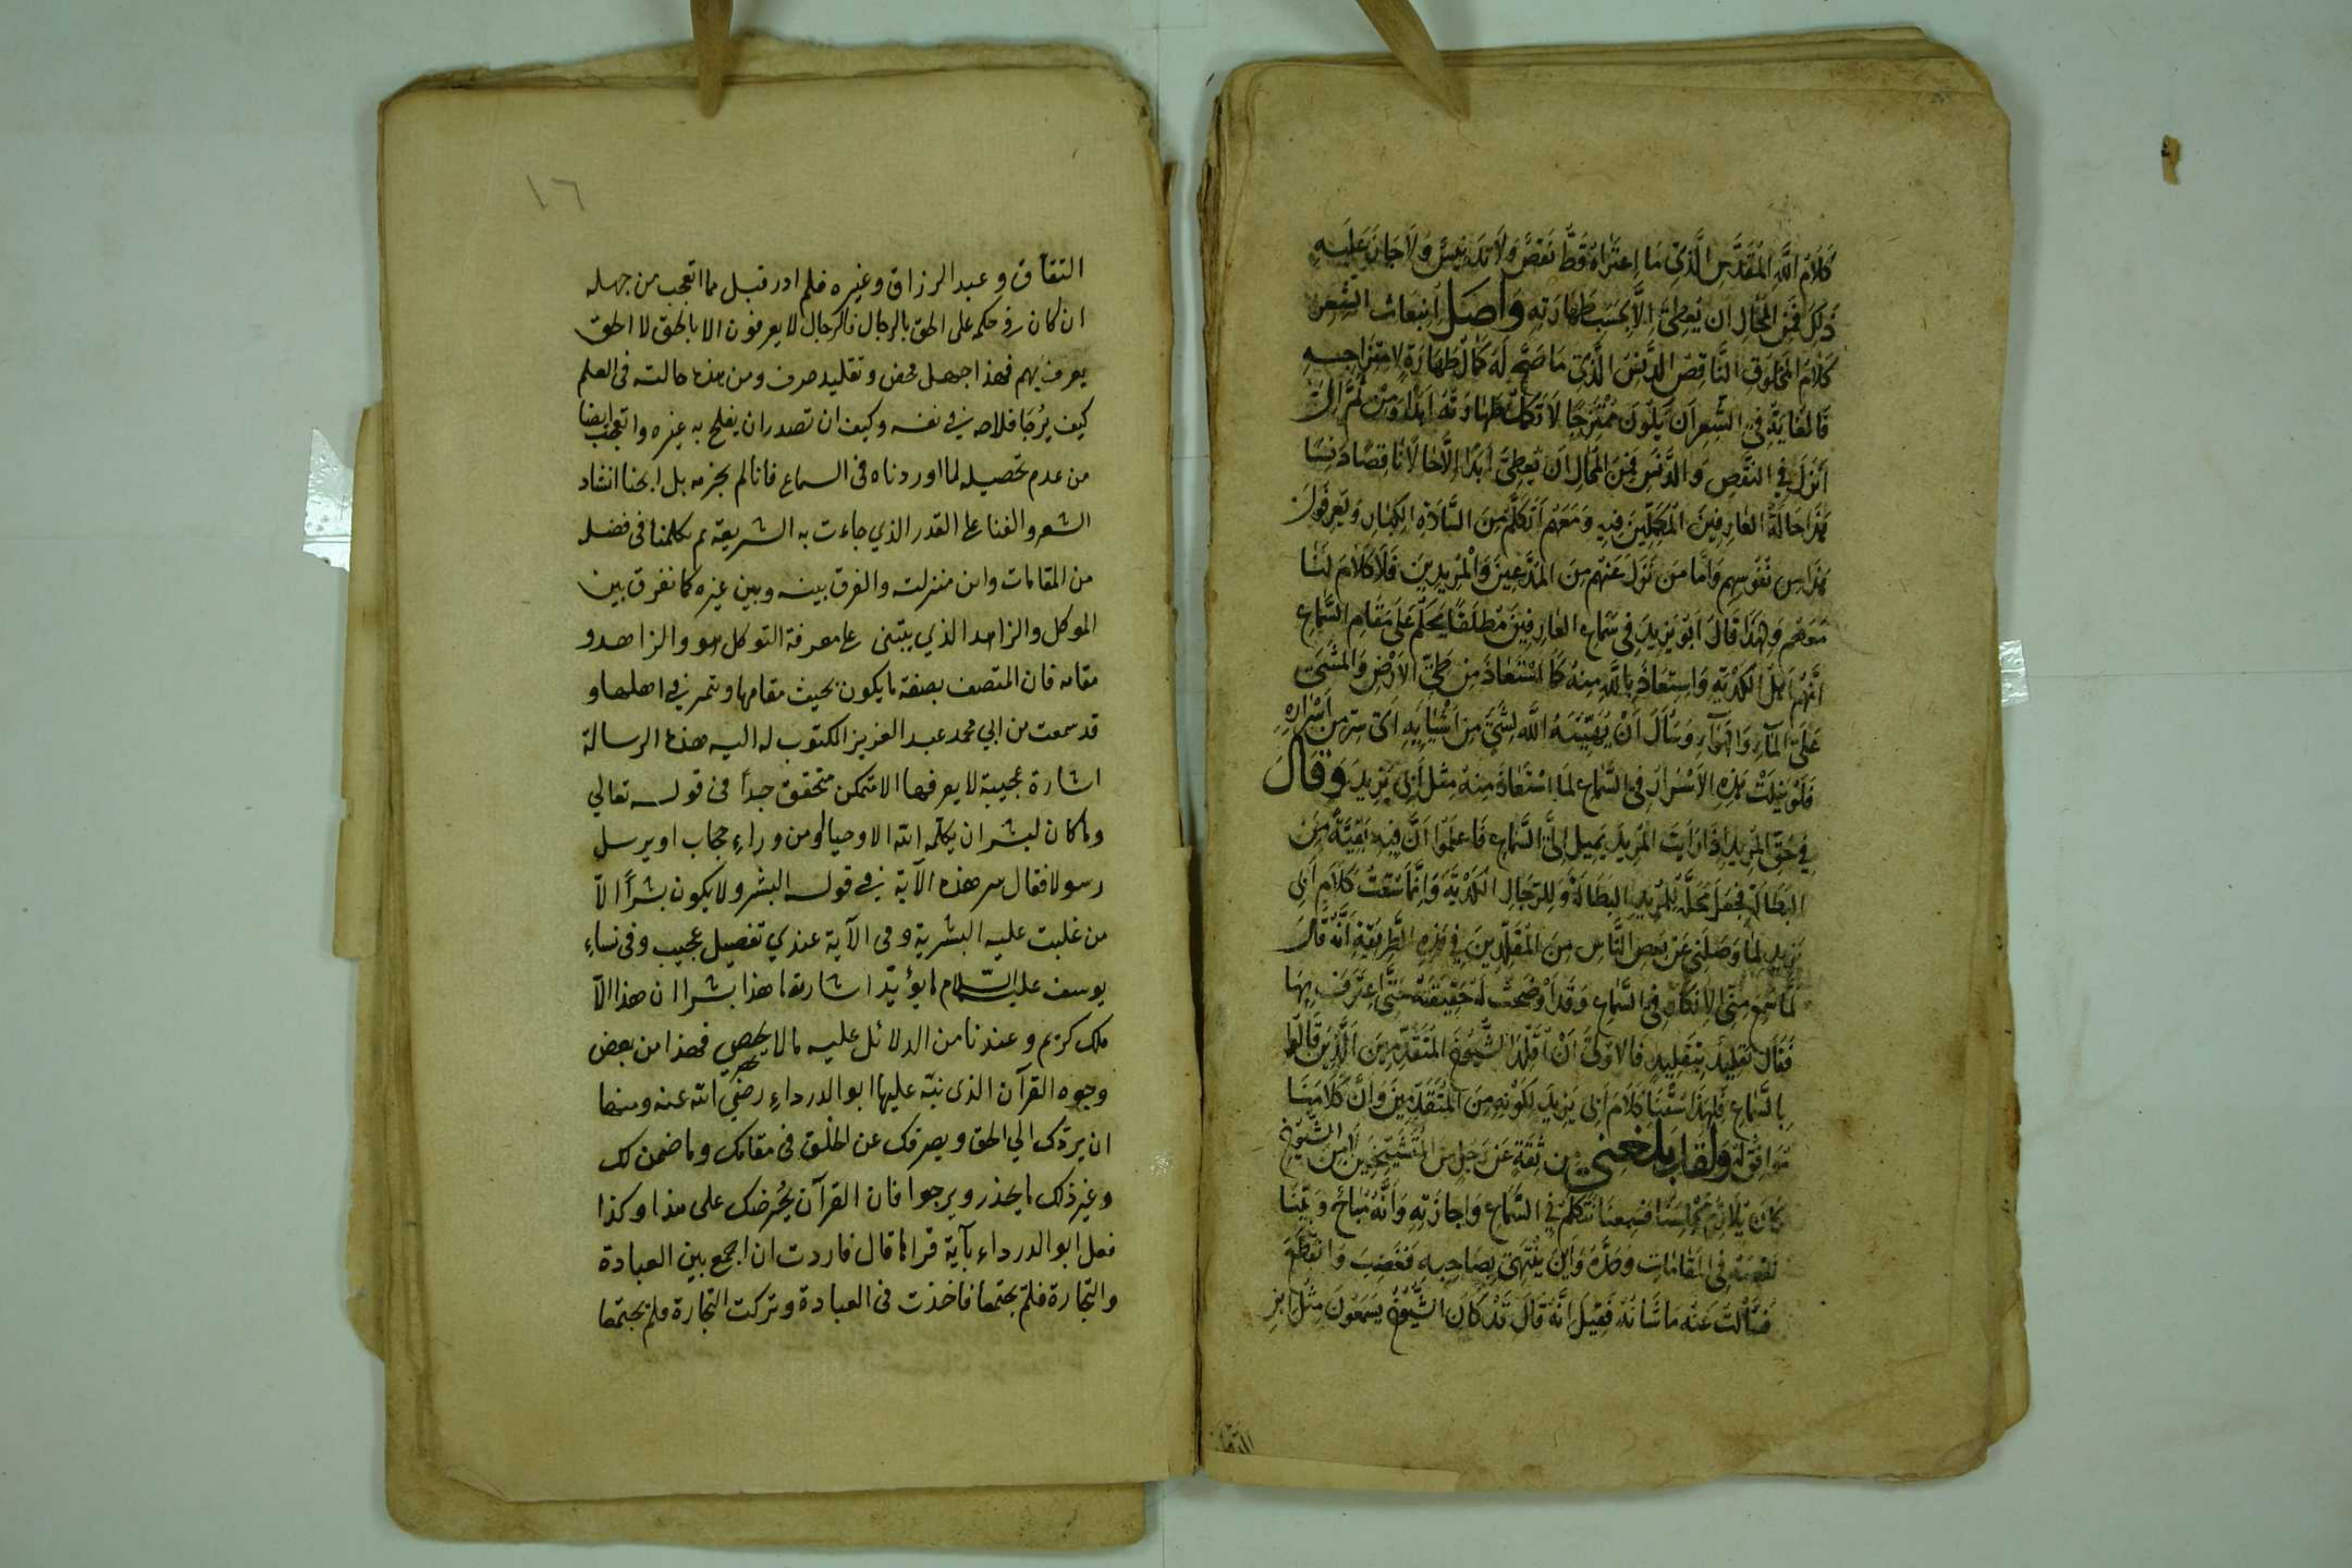 كَلَامُ اللَّهِ الْمُقَدَّسِ الَّذِي مَا اعْتَرَاهُ قَطُّ نَقْصٌ وَلَا تَدْنِيسٌ وَلَا جَازَ عَلَيْهِ
ذَلِكَ فَمِنَ الْمُحَالِ أَنْ يُعْطِيَ إِلَّا بِحَسَبِ طَهَارَتِهِ وَأَصْلُ انْبِعَاثِ الشِّعْرِ
كَلَامُ الْمَخْلُوقِ النَّاقِصِ الدَّنِسِ الَّذِي مَا صَحَّ لَهُ كَمَالُ طَهَارَةٍ لِامْتِزَاجِهِ
فَالْغَايَةُ فِي الشِّعْرِ أَنْ يَكُونَ مُمْتَزِجًا لَا تَكْمُلُ طَهَارَتُهُ أَبَدًا وَمِنْ ثَمَّ إِلَى
أَنْزَلَ فِي النَّقْصِ وَالدَّنَسِ فَمِنَ الْمُحَالِ أَنْ يُعْطِيَ أَبَدًا إِلَّا حَالًا نَاقِصًا دَنِسًا
هَذَا حَالَةُ الْعَارِفِينَ الْمُكَمَّلِينَ فِيهِ وَمَعَهُمْ أَتَكَلَّمُ مِنَ السَّادَةِ الْكِبَارِ وَيَعْرِفُونَ
هَذَا مِنْ نُفُوسِهِمْ وَأَمَّا مَنْ نَزَلَ عَنْهُمْ مِنَ الْمُدَّعِينَ وَالْمُرِيدِينَ فَلَا كَلَامَ لَنَا
مَعَهُمْ وَلِهَذَا قَالَ أَبُو يَزِيدَ فِي سَمَاعِ الْعَارِفِينَ مُطْلَقًا يَحْكُمُ عَلَى مَقَامِ السَّمَاعِ
أَنَّهُمْ أَهْلُ الْكُدْيَةِ وَاسْتَعَاذَ بِاللَّهِ مِنْهُ كَمَا اسْتَعَاذَ مِنْ طَيِّ الْأَرْضِ وَالْمَشْيِ
عَلَى الْمَاءِ وَالْهَوَاءِ وَسَأَلَ أَنْ يُهَيِّئَهُ اللَّهُ لِشَيْءٍ مِنْ أَشْيَائِهِ أَيْ سِرٍّ مِنْ أَسْرَارِهِ
فَلَوْ نِيلَتْ هَذِهِ الْأَسْرَارُ فِي السَّمَاعِ لَمَا اسْتَعَاذَ مِنْهُ مِثْلُ أَبِي يَزِيدَ وَقَالَ
فِي حَقِّ الْمُرِيدِ إِذَا رَأَيْتَ الْمُرِيدَ يَمِيلُ إِلَى السَّمَاعِ فَاعْلَمُوا أَنَّ فِيهِ بَقِيَّةً مِنَ
الْبَطَالَةِ فَجَعَلَ مَحَلَّهُ لِلْمُرِيدِ الْبَطَالَةَ وَلِلرِّجَالِ الْكُدْيَةَ وَإِنَّمَا سُقْتُ كَلَامَ أَبِي
يَزِيدَ لِمَا وَصَلَنِي عَنْ بَعْضِ النَّاسِ مِنَ الْمُقَلِّدِينَ فِي هَذِهِ الطَّرِيقَةِ أَنَّهُ قَالَ
لَمَّا سَمِعَ مِنِّي الْإِنْكَارَ فِي السَّمَاعِ وَقَدْ أَوْضَحْتُ لَهُ حَقِيقَتَهُ حَتَّى اعْتَرَفَ بِهَا
فَقَالَ تَقْلِيدٌ بِتَقْلِيدٍ فَالْأَوْلَى أَنْ أُقَلِّدَ الشُّيُوخَ الْمُتَقَدِّمِينَ الَّذِينَ قَالُوا
بِالسَّمَاعِ فَلِهَذَا سُقْنَا كَلَامَ أَبِي يَزِيدَ لِكَوْنِهِ مِنَ الْمُتَقَدِّمِينَ وَأَنَّ كَلَامَنَا
مُوَافِقٌ لَهُ وَلَقَدْ بَلَغَنِي مِنْ ثِقَةٍ عَنْ رَجُلٍ مِنَ الْمُتَشَيِّخِينَ ابْنِ الشُّيُوخِ
كَانَ يُلَازِمُ مَجْلِسَنَا فَسَمِعَنَا نَتَكَلَّمُ فِي السَّمَاعِ وَإِجَازَتِهِ وَأَنَّهُ مُبَاحٌ وَبَيَّنَّا
نَقْصَهُ فِي الْمَقَامَاتِ وَحَدَّهُ وَأَيْنَ يَنْتَهِي بِصَاحِبِهِ فَغَضِبَ وَانْقَطَعَ
فَسَأَلْتُ عَنْهُ مَا شَأْنُهُ فَقِيلَ إِنَّهُ قَالَ قَدْ كَانَ الشُّيُوخُ يَسْمَعُونَ مِثْلَ ابْنِ
١٦
الدقاق وعبد الرزاق وغيره فلم ادر قبل مما اتعجب من جهله
ان كان في حكمه على الحق بالرجال فالرجال لا يعرفون الا بالحق لا الحق
يعرف بهم فهذا جهل محض وتقليد صرف ومن هذه حالته في العلم
كيف يُرجَا فلاحه في نفسه وكيف ان تصدر ان يفلح به غيره واتعجب ايضا
من عدم تحصيله لما اوردناه في السماع فانا لم نحرمه بل ابحنا انشاد
الشعر والغنا على القدر الذي جاءت به الشريعة ثم تكلمنا في فضله
من المقامات واين منزلته والفرق بينه وبين غيره كما نفرق بين
الموكل والزاهد الذي يبتنى على معرفة التوكل هو والزاهد و
مقامه فان المتصف بصفة ما يكون بحيث مقامها ويتمر في اهلها و
قد سمعت من ابي محمد عبد العزيز المكتوب له اليه هذه الرسالة
اشارة عجيبة لا يعرفها الا متمكن متحقق جداً في قوله تعالي
وما كان لبشر ان يكلمه الله الا وحيا او من وراءِ حجاب او يرسل
رسولا فقال سر هذه الآية في قوله البشر ولا يكون بشراً الّا
من غلبت عليه البشرية وفي الآية عندي تفصيل عجيب وفي نساءِ
يوسف عليه السّلام ما يؤيّد اشارته ما هذا بشرا ان هذا الّا
ملك كريم وعندنا من الدلائل عليه ما لا يحصى فهذا من بعض
وجوه القرآن الذى نبّه عليها ابو الدرداءِ رضي الله عنه ومنها
ان يردّك الي الحق ويصرفك عن الخلق في مقامك وما ضمن لك
وغير ذلك ما يحذر ويرجوا فان القرآن يُحرضك على هذا وكذا
فعل ابو الدرداءِ بآية قراها قال فاردت ان اجمع بين العبادة
والتجارة فلم يجتمعا فاخذت في العبادة وتركت التجارة فلم يجتمعا